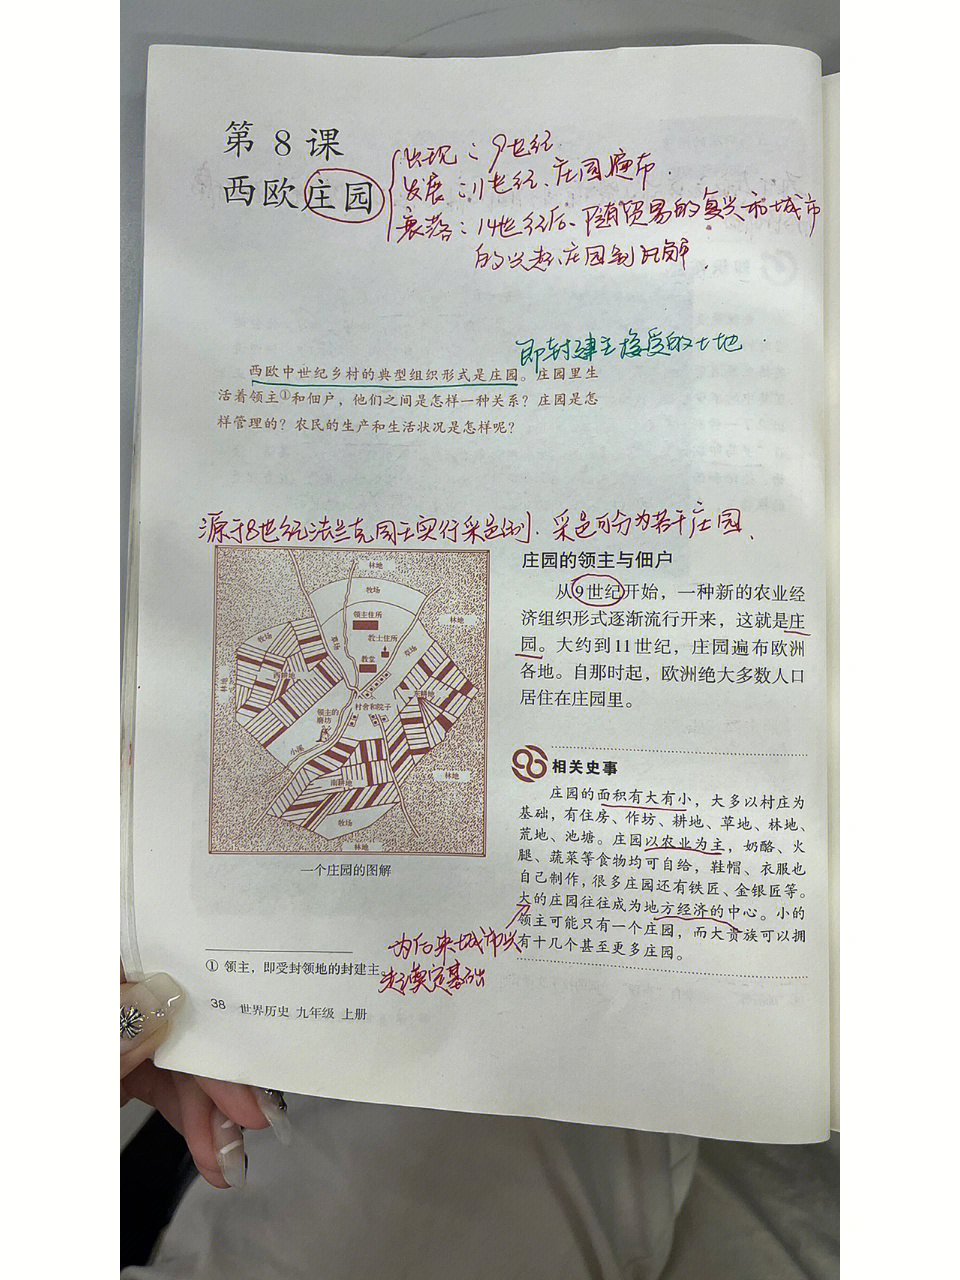 第 8 课
西欧庄园
出现：9世纪
发展：11世纪、庄园遍布.
衰落：14世纪后、随贸易的复兴和城市
的兴起、庄园制瓦解.
即封建主接受的土地
西欧中世纪乡村的典型组织形式是庄园。庄园里生
活着领主①和佃户，他们之间是怎样一种关系？庄园是怎
样管理的？农民的生产和生活状况是怎样呢？
源于8世纪法兰克国王实行采邑制、采邑可分为若干庄园、
林地
牧场
领主住所
林地
教士住所
牧场
草场
教堂
西耕地
林地
东耕地
村舍和院子
领主的
磨坊
小溪
林地
南耕地
牧场
林地
一个庄园的图解
庄园的领主与佃户
从9世纪开始，一种新的农业经
济组织形式逐渐流行开来，这就是庄
园。大约到11世纪，庄园遍布欧洲
各地。自那时起，欧洲绝大多数人口
居住在庄园里。
相关史事
庄园的面积有大有小，大多以村庄为
基础，有住房、作坊、耕地、草地、林地、
荒地、池塘。庄园以农业为主，奶酪、火
腿、蔬菜等食物均可自给，鞋帽、衣服也
自己制作，很多庄园还有铁匠、金银匠等。
大的庄园往往成为地方经济的中心。小的
领主可能只有一个庄园，而大贵族可以拥
有十几个甚至更多庄园。
为后来城市兴
起奠定基础
① 领主，即受封领地的封建主。
38 世界历史 九年级 上册